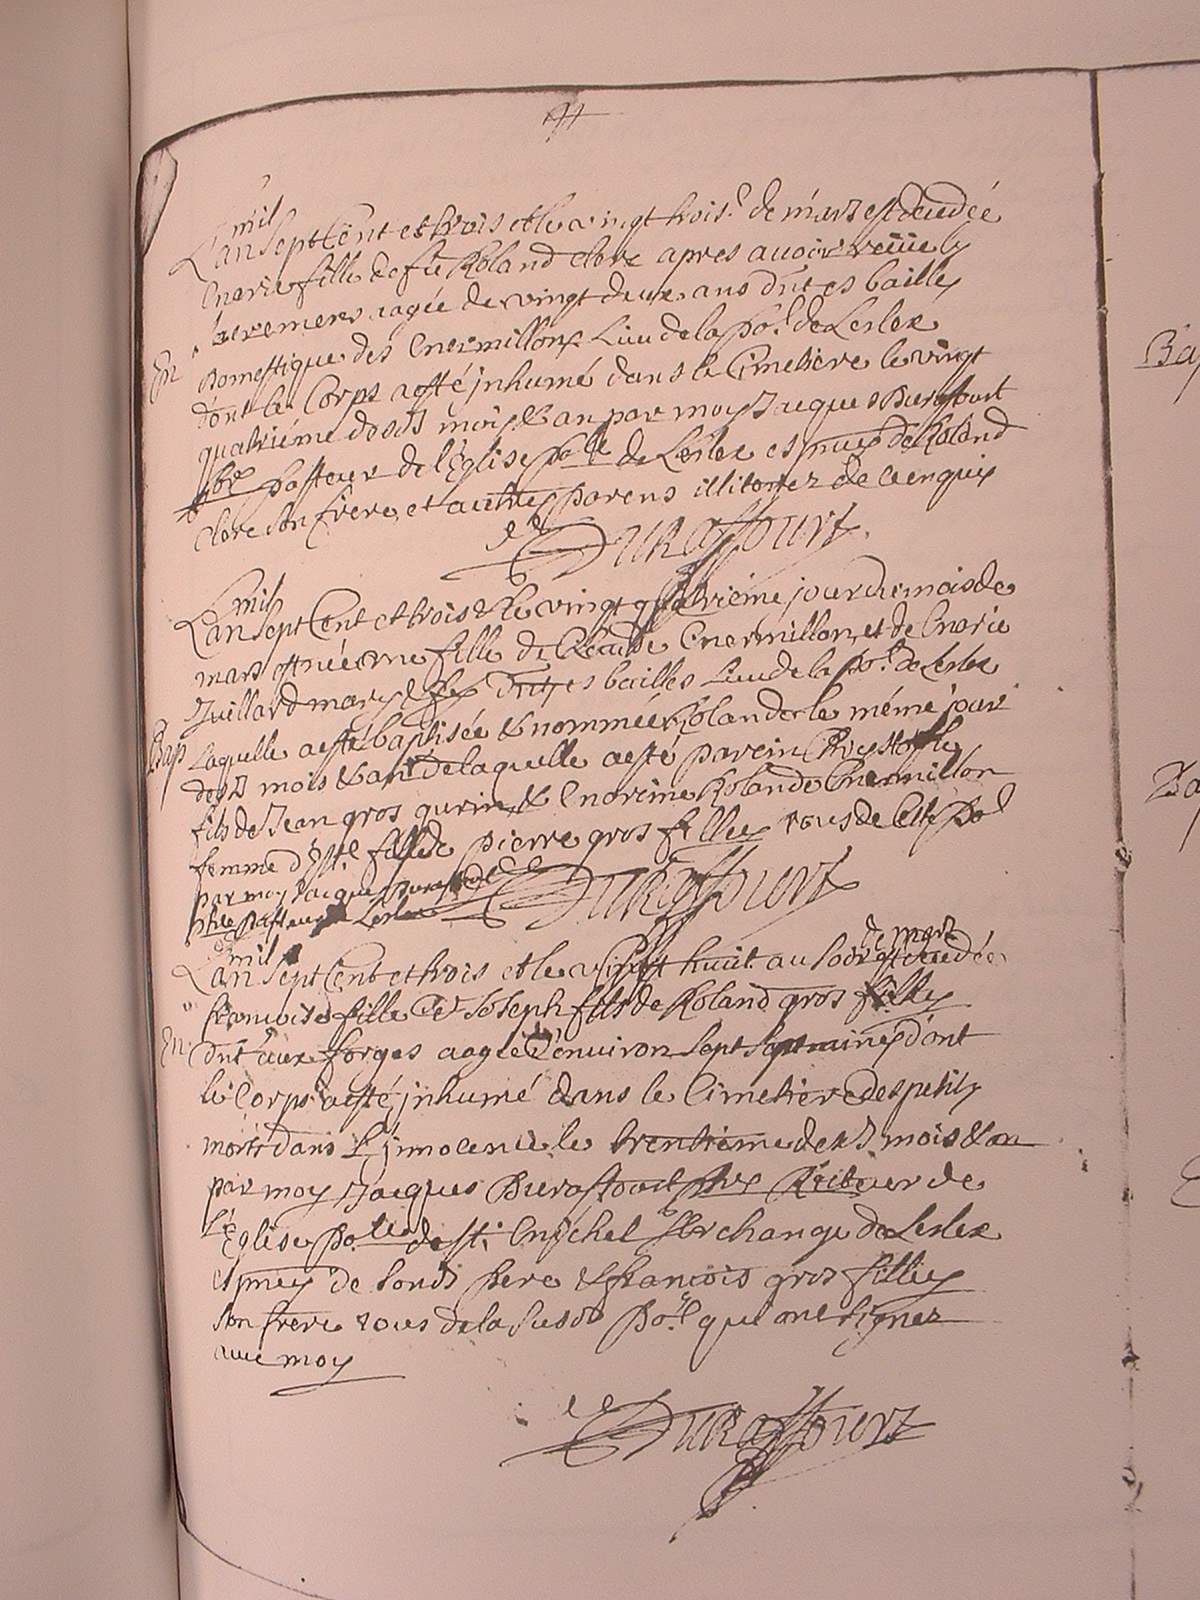 mil
L'an sept Cent et trois et le vingt trois.e de mars est decedée
Marie fille de feu Roland Clerc apres avoir reçu les
sacremens aagée de vingt deux ans dut es bailles
En
Domestique des Mermillons Lieu de la po.e de Lesler
dont le Corps a esté inhumé dans le Cimetiere le vingt
quatriéme desd mois & an par moy Jacques Duraffourt
pbre pasteur de l'Eglise po.lle de Lesler es pnces de Roland
Clerc son frere, et autres parens illiterez de ce enquis
Duraffourt
mil
L'an sept Cent et trois & le vingt quatriéme jour du mois de
mars est née une fille de Claude Mermillon, et de Marie
Juillard maryés des dut es bailles Lieu de la po.e de Lesler
Bap
Laquelle a esté baptisée & nommée Rolande le méme jour
desd mois & an de laquelle a esté parein Chrystofle
fils de Jean gros gurin & Mareine Rolande Mermillon
femme d' fille de pierre gros fillies tous de cette po.e
par moy Jacques Duraffourt
pbre Pasteur de Lesler
Duraffourt
mil de mars
L'an sept Cent et trois et le vingt huit au soir est decedée
francoise fille de Joseph fils de Roland gros fillies
En
dut aux forges aagée d'environ sept septmaines dont
le Corps a esté inhumé dans le Cimetiere des petits
morts dans l'innocence le trentiéme desd mois & an
par moy Jacques Duraffourt pbre Recteur de
L'Eglise po.lle de st. Michel Archange de Lesler
es pnces de sond pere & francois gros fillies
son frere tous de la susd po.e qui ont signez
avec moy
Duraffourt
Ba
Ba